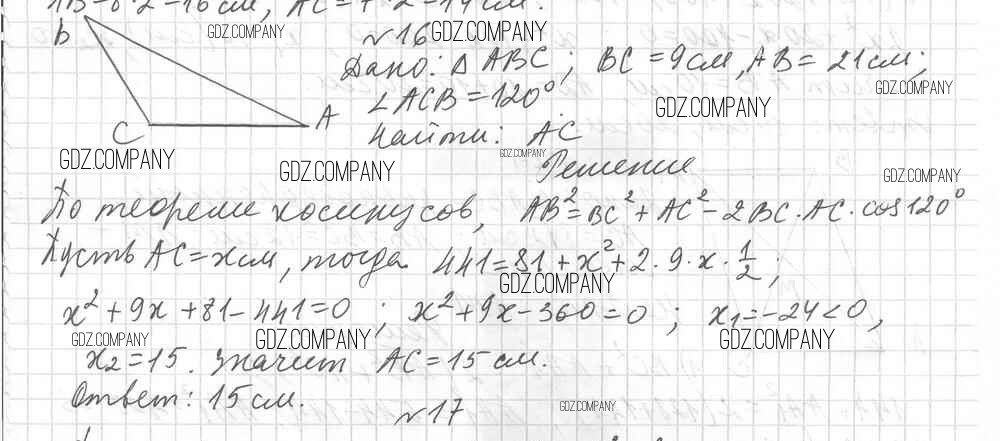 AB=8·2=16см, AC=7·2=14см.
N16 GDZ.COMPANY
GDZ.COMPANY
B
Дано: Δ ABC; BC=9см, AB=21см;
∠ACB=120°.
GDZ.COMPANY
GDZ.COMPANY
C A
Найти: AC
GDZ.COMPANY
GDZ.COMPANY
GDZ.COMPANY
Решение
GDZ.COMPANY
По теореме косинусов, AB²=BC²+AC²-2BC·AC·cos120°
Пусть AC=xсм, тогда 441=81+x²+2·9·x·1/2;
GDZ.COMPANY
x²+9x+81-441=0; x²+9x-360=0; x₁=-24<0,
GDZ.COMPANY GDZ.COMPANY GDZ.COMPANY
x₂=15. Значит AC=15см.
Ответ: 15см.
GDZ.COMPANY
N17